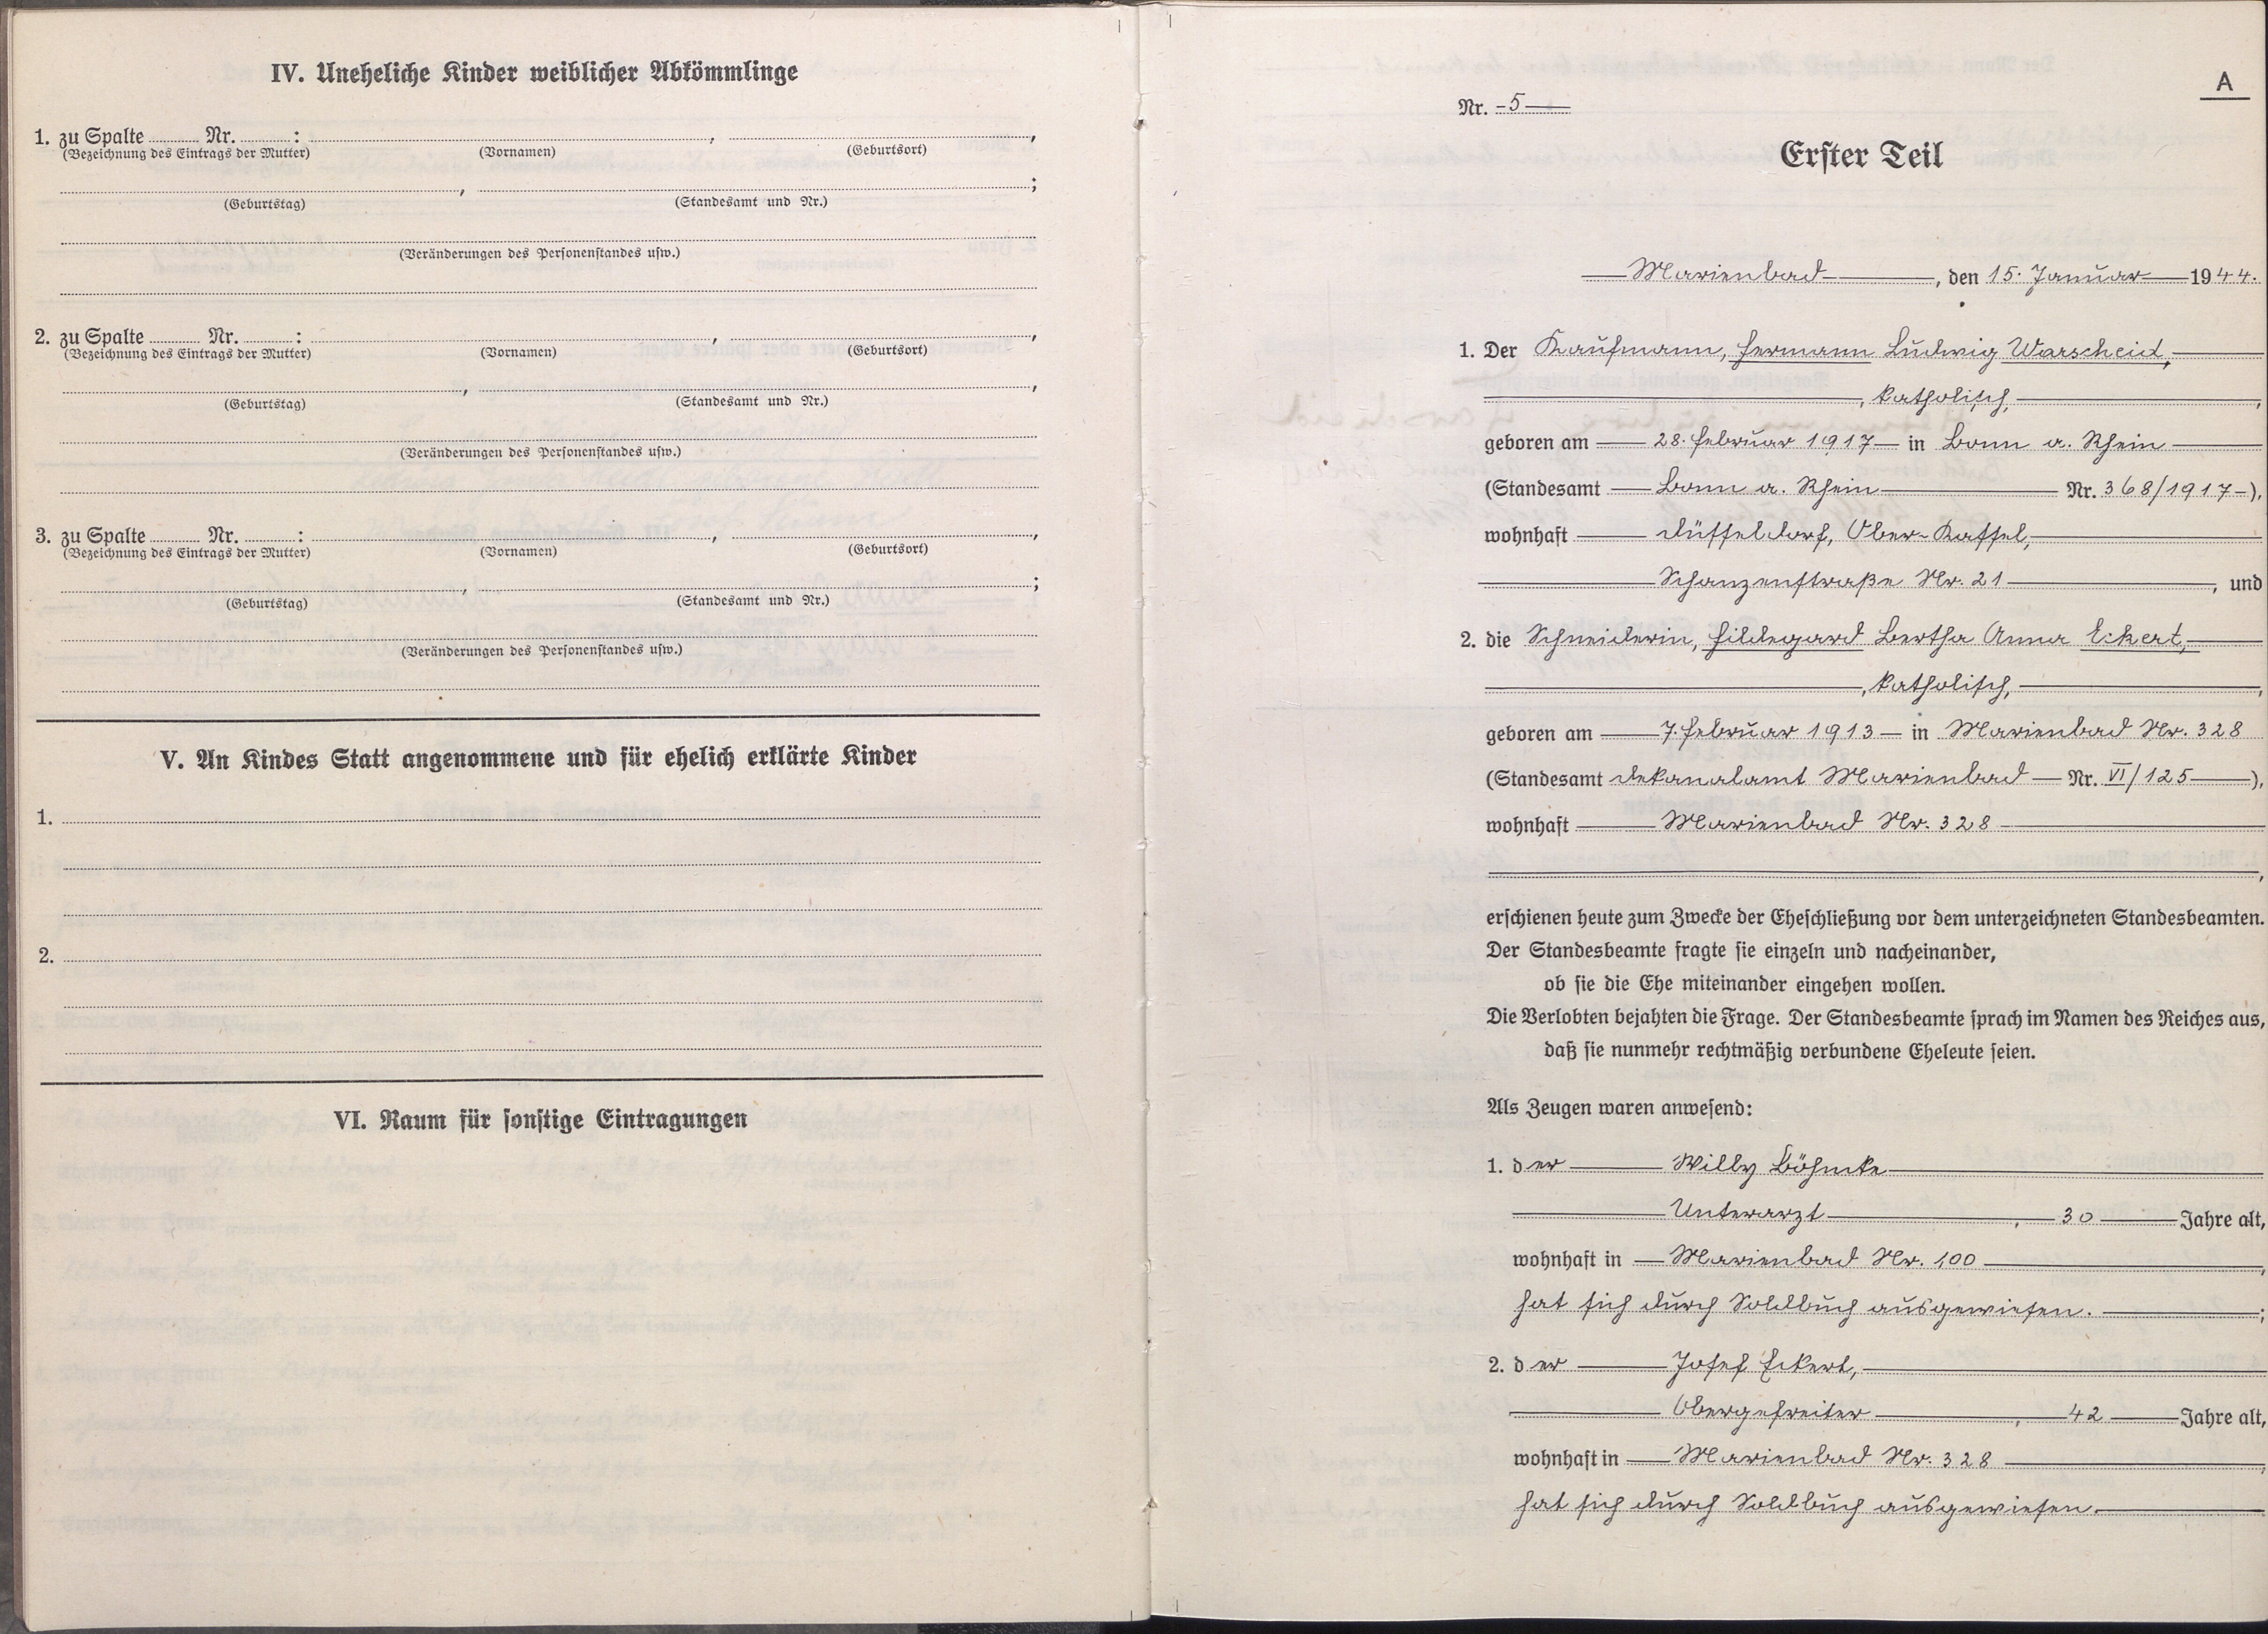 IV. Uneheliche Kinder weiblicher Abkömmlinge
1. zu Spalte ........ Nr. ........ : ........ , ........ ,
(Bezeichnung des Eintrags der Mutter) (Vornamen) (Geburtsort)
........ , ........ ;
(Geburtstag) (Standesamt und Nr.)
(Veränderungen des Personenstandes usw.)
2. zu Spalte ........ Nr. ........ : ........ , ........ ,
(Bezeichnung des Eintrags der Mutter) (Vornamen) (Geburtsort)
........ , ........ ,
(Geburtstag) (Standesamt und Nr.)
(Veränderungen des Personenstandes usw.)
3. zu Spalte ........ Nr. ........ : ........ , ........ ,
(Bezeichnung des Eintrags der Mutter) (Vornamen) (Geburtsort)
........ , ........ ;
(Geburtstag) (Standesamt und Nr.)
(Veränderungen des Personenstandes usw.)
V. An Kindes Statt angenommene und für ehelich erklärte Kinder
1.
2.
VI. Raum für sonstige Eintragungen
A
Nr. -5-
Erster Teil
Marienbad, den 15. Januar 1944.
1. Der Kaufmann, Hermann Ludwig Warscheid,
, katholisch,
geboren am 28. Februar 1917 in Bonn a. Rhein
(Standesamt Bonn a. Rhein Nr. 368/1917-),
wohnhaft Düsseldorf, Ober-Kassel,
Schanzenstraße Nr. 21, und
2. die Schneiderin, Hildegard Bertha Anna Eckert,
, katholisch,
geboren am 7. Februar 1913 in Marienbad Nr. 328
(Standesamt Dekanalamt Marienbad Nr. VI/125),
wohnhaft Marienbad Nr. 328
,
erschienen heute zum Zwecke der Eheschließung vor dem unterzeichneten Standesbeamten.
Der Standesbeamte fragte sie einzeln und nacheinander,
ob sie die Ehe miteinander eingehen wollen.
Die Verlobten bejahten die Frage. Der Standesbeamte sprach im Namen des Reiches aus,
daß sie nunmehr rechtmäßig verbundene Eheleute seien.
Als Zeugen waren anwesend:
1. der Willy Böhmke
Unterarzt, 30 Jahre alt,
wohnhaft in Marienbad Nr. 100,
hat sich durch Soldbuch ausgewiesen. ;
2. der Josef Eckert,
Obergefreiter, 42 Jahre alt,
wohnhaft in Marienbad Nr. 328,
hat sich durch Soldbuch ausgewiesen.